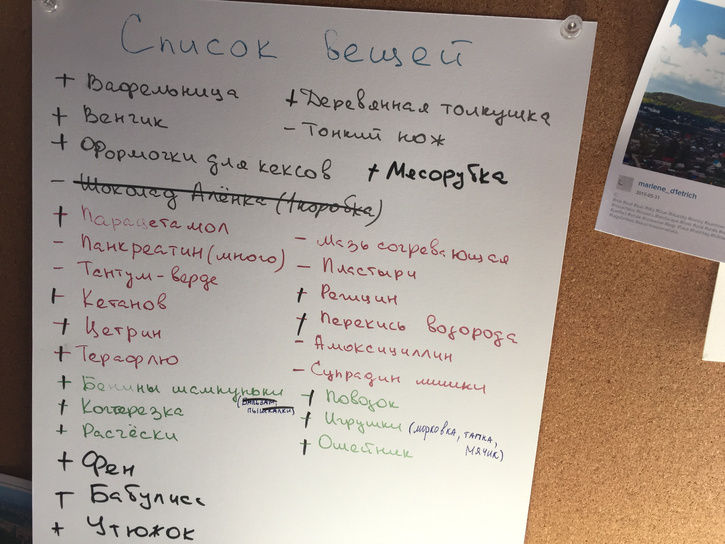 Список вещей
+ Вафельница
+ Деревянная толкушка
+ Венчик
- Тонкий нож
+ Формочки для кексов
+ Мясорубка
- Шоколад Алёнка (1 коробка)
+ Парацетамол
- Панкреатин (много)
- Мазь согревающая
- Тантум-верде
- Пластыри
+ Кетанов
+ Регицин
+ Цетрин
+ Перекись водорода
+ Терафлю
- Амоксициллин
- Супрадин мишки
+ Бенины шампуньки
+ Поводок
+ Когтерезка
+ Игрушки (морковка, тапка, мячик)
+ Расчёски
+ Ошейник
+ Фен
т Бабулисс
+ Утюжок
marlene_dfetrich